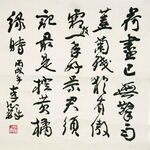 荷盡已無擎雨
蓋菊殘猶有傲
霜枝一年好景君須
記最是橙黃橘
綠時